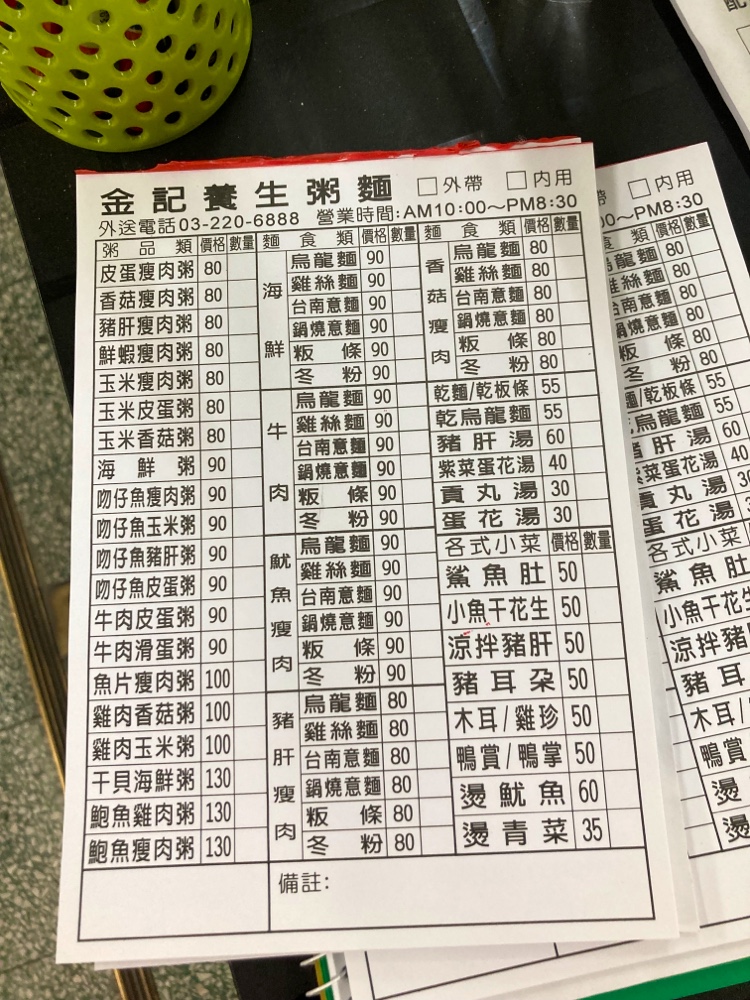 金記養生粥麵 □外帶 □內用
外送電話03-220-6888 營業時間:AM10:00～PM8:30
粥品類 價格 數量
皮蛋瘦肉粥 80
香菇瘦肉粥 80
豬肝瘦肉粥 80
鮮蝦瘦肉粥 80
玉米瘦肉粥 80
玉米皮蛋粥 80
玉米香菇粥 80
海鮮粥 90
吻仔魚瘦肉粥 90
吻仔魚玉米粥 90
吻仔魚豬肝粥 90
吻仔魚皮蛋粥 90
牛肉皮蛋粥 90
牛肉滑蛋粥 90
魚片瘦肉粥 100
雞肉香菇粥 100
雞肉玉米粥 100
干貝海鮮粥 130
鮑魚雞肉粥 130
鮑魚瘦肉粥 130
麵食類 價格 數量
海鮮
烏龍麵 90
雞絲麵 90
台南意麵 90
鍋燒意麵 90
粄條 90
冬粉 90
牛肉
烏龍麵 90
雞絲麵 90
台南意麵 90
鍋燒意麵 90
粄條 90
冬粉 90
魷魚瘦肉
烏龍麵 90
雞絲麵 90
台南意麵 90
鍋燒意麵 90
粄條 90
冬粉 90
豬肝瘦肉
烏龍麵 80
雞絲麵 80
台南意麵 80
鍋燒意麵 80
粄條 80
冬粉 80
麵食類 價格 數量
香菇瘦肉
烏龍麵 80
雞絲麵 80
台南意麵 80
鍋燒意麵 80
粄條 80
冬粉 80
乾麵/乾板條 55
乾烏龍麵 55
豬肝湯 60
紫菜蛋花湯 40
貢丸湯 30
蛋花湯 30
各式小菜 價格 數量
鯊魚肚 50
小魚干花生 50
涼拌豬肝 50
豬耳朵 50
木耳/雞珍 50
鴨賞/鴨掌 50
燙魷魚 60
燙青菜 35
備註:
帶 □內用
00～PM8:30
食類 價格 數量
烏龍麵 80
雞絲麵 80
台南意麵 80
鍋燒意麵 80
粄條 80
冬粉 80
麵/乾板條 55
烏龍麵 55
肝湯 60
紫菜蛋花湯 40
貢丸湯
蛋花湯
各式小菜
鯊魚肚
小魚干花生
涼拌豬肝
豬耳
木耳/
鴨賞
燙
燙